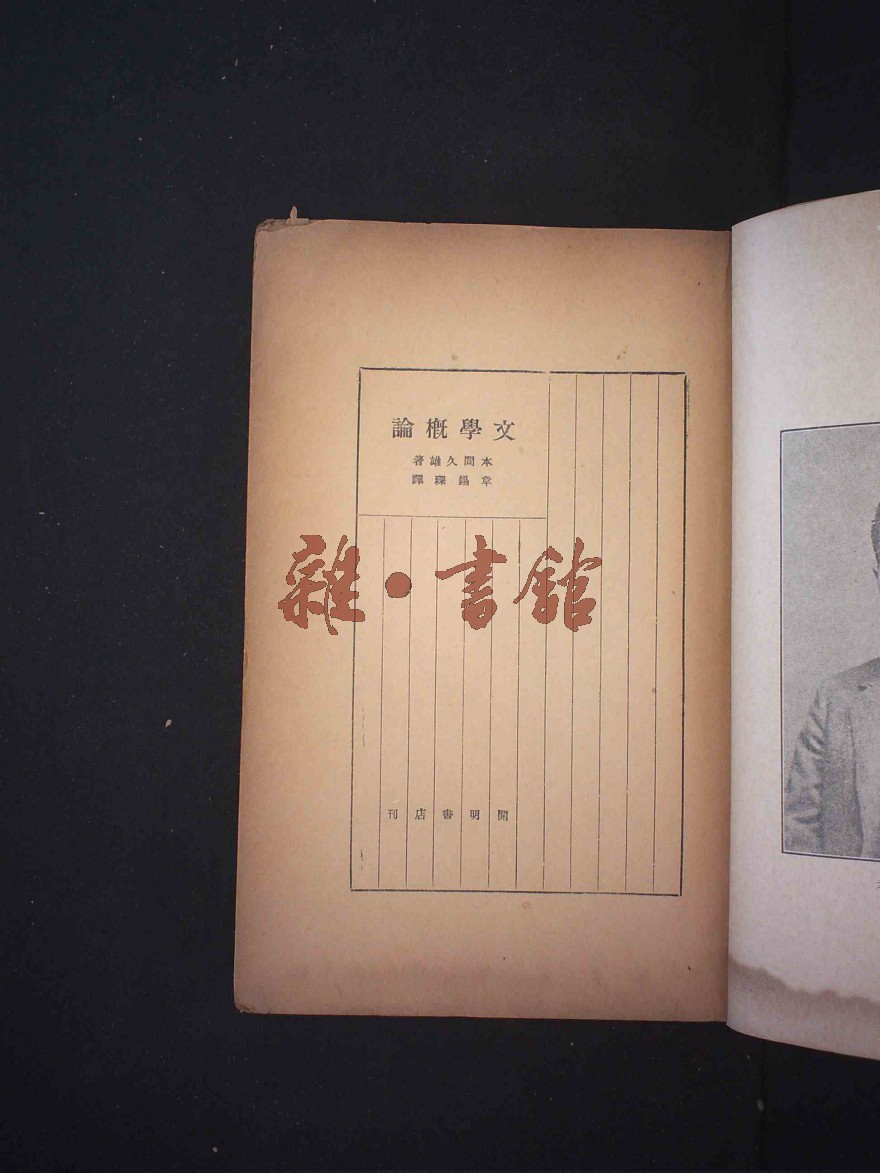 文學概論
本間久雄著
章錫琛譯
雜·書館
開明書店刊